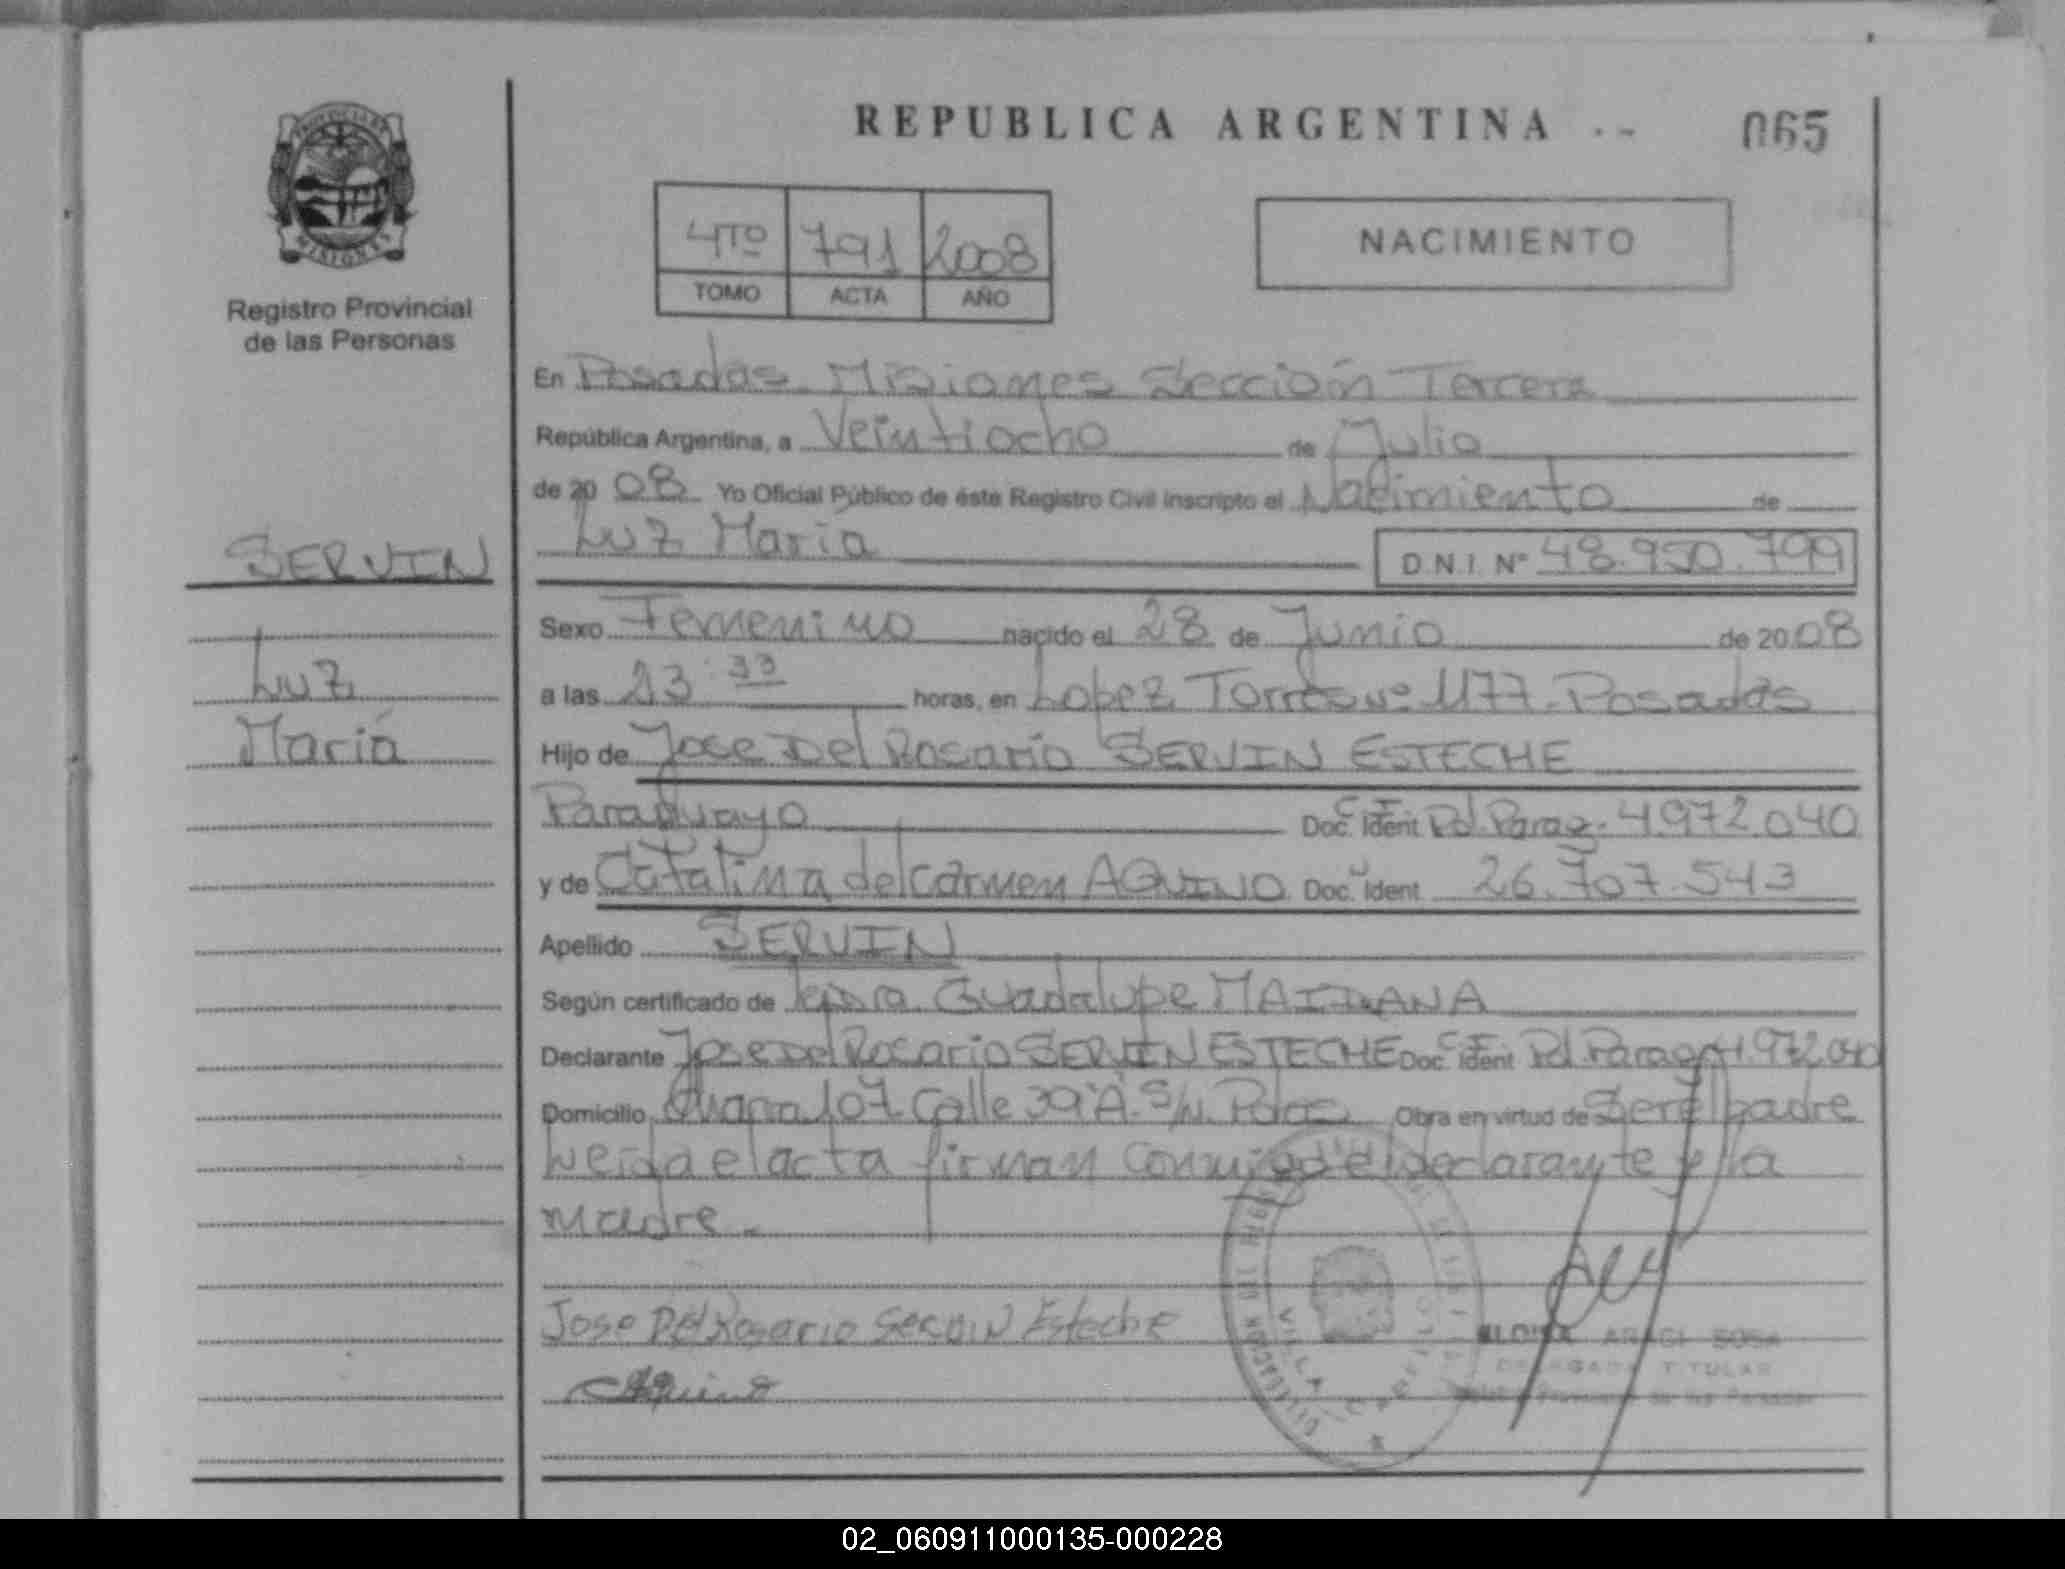 PROVINCIA DE
MISIONES
Registro Provincial
de las Personas
SERVIN
Luz
María
REPUBLICA ARGENTINA
065
4TO 791 2008
TOMO ACTA AÑO
NACIMIENTO
En Posadas Misiones Sección Tercera
República Argentina, a Veintiocho de Julio
de 20 08 Yo Oficial Público de éste Registro Civil inscripto el Nacimiento de
Luz María D.N.I. Nº 48.950.799
Sexo Femenino nacido el 28 de Junio de 20 08
a las 23:33 horas, en Lopez Torres nº 1177 - Posadas
Hijo de Jose Del Rosario SERVIN ESTECHE
Paraguayo Doc. Ident C.I. Pol. Parag. 4.972.040
y de Catalina del Carmen AQUINO Doc. Ident 26.707.543
Apellido SERVIN
Según certificado de Guadalupe MAIDANA
Declarante Jose Del Rosario SERVIN ESTECHE Doc. Ident C.I. Pol. Parag. 4.972.040
Domicilio 107 Calle 39 "A" S/N. Pdas Obra en virtud de Ser el padre
Leida el acta firman conmigo el declarante y la
madre.-
Jose Del Rosario Servin Esteche
CAquino
ARACI SOSA
DELEGADA TITULAR
VILLA
02_060911000135-000228